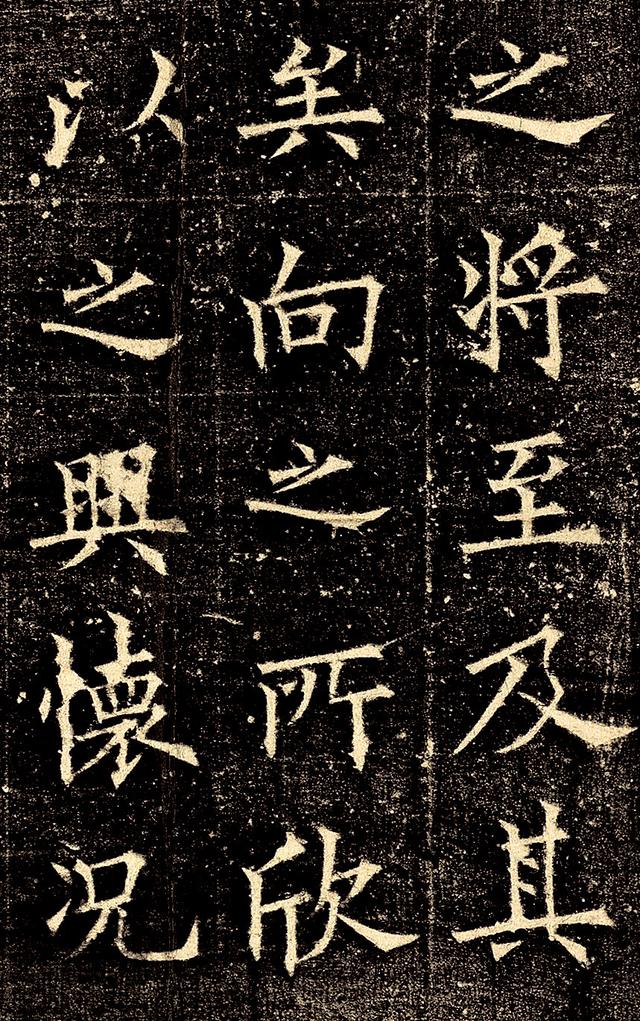 之將至及其
矣向之所欣
以之興懷況